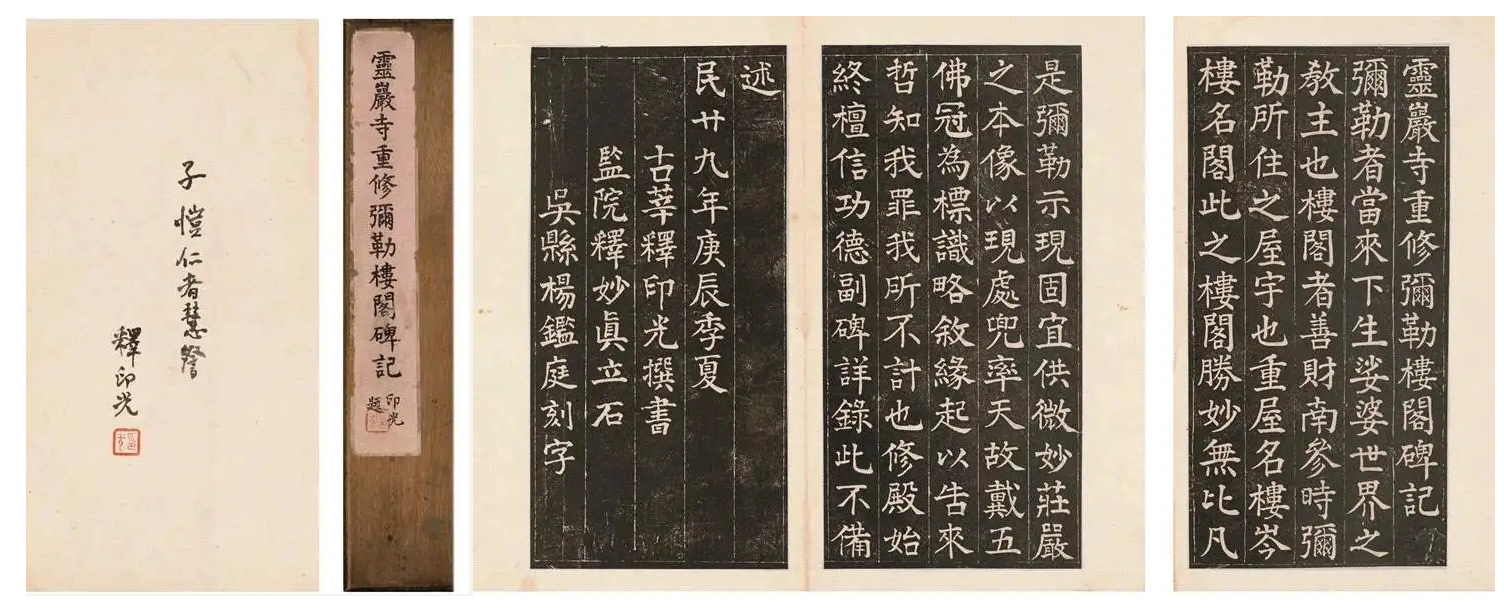 靈巖寺重修彌勒樓閣碑記
彌勒者當來下生娑婆世界之
教主也樓閣者善財南參時彌
勒所住之屋宇也重屋名樓岑
樓名閣此之樓閣勝妙無比凡
是彌勒示現固宜供微妙莊嚴
之本像以現處兜率天故戴五
佛冠為標識略敘緣起以告來
哲知我罪我所不計也修殿始
終檀信功德副碑詳錄此不備
述
民廿九年庚辰季夏
古莘釋印光撰書
監院釋妙眞立石
吳縣楊鑑庭刻字
靈巖寺重修彌勒樓閣碑記
印光
題
子愷仁者慧詧
釋印光